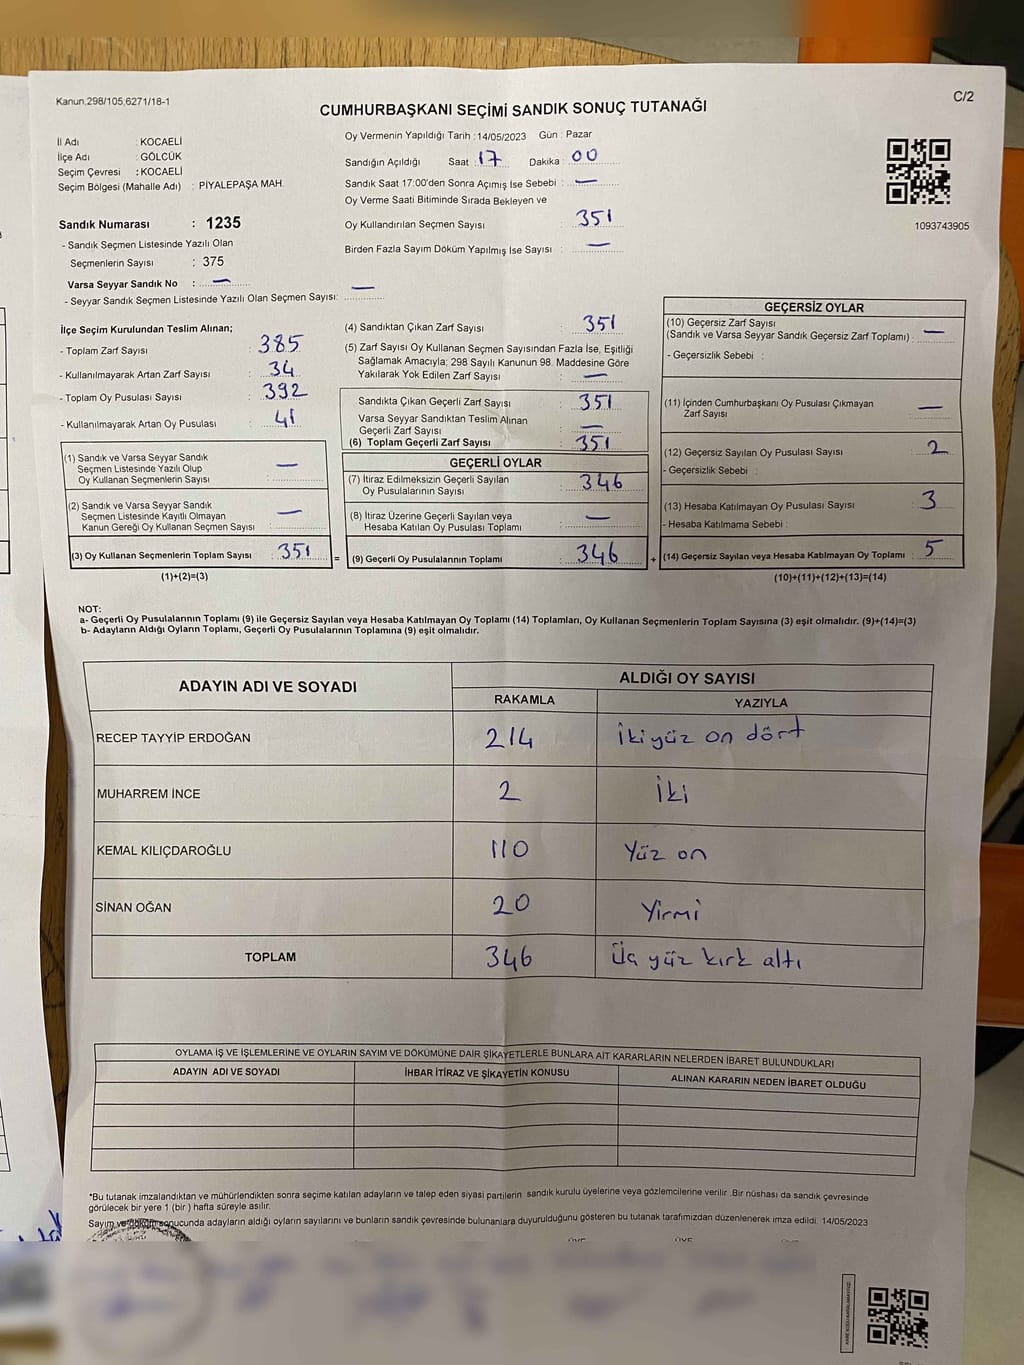 Kanun,298/105,6271/18-1
C/2
CUMHURBAŞKANI SEÇİMİ SANDIK SONUÇ TUTANAĞI
İl Adı : KOCAELİ
İlçe Adı : GÖLCÜK
Seçim Çevresi : KOCAELİ
Seçim Bölgesi (Mahalle Adı) : PİYALEPAŞA MAH.
Sandık Numarası : 1235
- Sandık Seçmen Listesinde Yazılı Olan
Seçmenlerin Sayısı : 375
Varsa Seyyar Sandık No : —
- Seyyar Sandık Seçmen Listesinde Yazılı Olan Seçmen Sayısı: —
Oy Vermenin Yapıldığı Tarih : 14/05/2023 Gün : Pazar
Sandığın Açıldığı Saat : 17 Dakika : 00
Sandık Saat 17:00'den Sonra Açımış İse Sebebi : —
Oy Verme Saati Bitiminde Sırada Bekleyen ve
Oy Kullandırılan Seçmen Sayısı : 351
Birden Fazla Sayım Döküm Yapılmış İse Sayısı : —
1093743905
İlçe Seçim Kurulundan Teslim Alınan;
- Toplam Zarf Sayısı : 385
- Kullanılmayarak Artan Zarf Sayısı : 34
- Toplam Oy Pusulası Sayısı : 392
- Kullanılmayarak Artan Oy Pusulası : 41
(1) Sandık ve Varsa Seyyar Sandık
Seçmen Listesinde Yazılı Olup
Oy Kullanan Seçmenlerin Sayısı : —
(2) Sandık ve Varsa Seyyar Sandık
Seçmen Listesinde Kayıtlı Olmayan
Kanun Gereği Oy Kullanan Seçmen Sayısı : —
(3) Oy Kullanan Seçmenlerin Toplam Sayısı : 351 =
(1)+(2)=(3)
(4) Sandıktan Çıkan Zarf Sayısı : 351
(5) Zarf Sayısı Oy Kullanan Seçmen Sayısından Fazla İse, Eşitliği
Sağlamak Amacıyla; 298 Sayılı Kanunun 98. Maddesine Göre
Yakılarak Yok Edilen Zarf Sayısı : —
Sandıkta Çıkan Geçerli Zarf Sayısı : 351
Varsa Seyyar Sandıktan Teslim Alınan
Geçerli Zarf Sayısı : —
(6) Toplam Geçerli Zarf Sayısı : 351
GEÇERLİ OYLAR
(7) İtiraz Edilmeksizin Geçerli Sayılan
Oy Pusulalarının Sayısı : 346
(8) İtiraz Üzerine Geçerli Sayılan veya
Hesaba Katılan Oy Pusulası Toplamı : —
(9) Geçerli Oy Pusulalarının Toplamı : 346 +
GEÇERSİZ OYLAR
(10) Geçersiz Zarf Sayısı
(Sandık ve Varsa Seyyar Sandık Geçersiz Zarf Toplamı) : —
- Geçersizlik Sebebi :
(11) İçinden Cumhurbaşkanı Oy Pusulası Çıkmayan
Zarf Sayısı : —
(12) Geçersiz Sayılan Oy Pusulası Sayısı : 2
- Geçersizlik Sebebi :
(13) Hesaba Katılmayan Oy Pusulası Sayısı : 3
- Hesaba Katılmama Sebebi :
(14) Geçersiz Sayılan veya Hesaba Katılmayan Oy Toplamı : 5
(10)+(11)+(12)+(13)=(14)
NOT:
a- Geçerli Oy Pusulalarının Toplamı (9) ile Geçersiz Sayılan veya Hesaba Katılmayan Oy Toplamı (14) Toplamları, Oy Kullanan Seçmenlerin Toplam Sayısına (3) eşit olmalıdır. (9)+(14)=(3)
b- Adayların Aldığı Oyların Toplamı, Geçerli Oy Pusulalarının Toplamına (9) eşit olmalıdır.
ADAYIN ADI VE SOYADI
ALDIĞI OY SAYISI
RAKAMLA YAZIYLA
RECEP TAYYİP ERDOĞAN 214 İki yüz on dört
MUHARREM İNCE 2 İki
KEMAL KILIÇDAROĞLU 110 Yüz on
SİNAN OĞAN 20 Yirmi
TOPLAM 346 Üç yüz kırk altı
OYLAMA İŞ VE İŞLEMLERİNE VE OYLARIN SAYIM VE DÖKÜMÜNE DAİR ŞİKAYETLERLE BUNLARA AİT KARARLARIN NELERDEN İBARET BULUNDUKLARI
ADAYIN ADI VE SOYADI İHBAR İTİRAZ VE ŞİKAYETİN KONUSU ALINAN KARARIN NEDEN İBARET OLDUĞU
*Bu tutanak imzalandıktan ve mühürlendikten sonra seçime katılan adayların ve talep eden siyasi partilerin sandık kurulu üyelerine veya gözlemcilerine verilir .Bir nüshası da sandık çevresinde
görülecek bir yere 1 (bir ) hafta süreyle asılır.
Sayım ve döküm sonucunda adayların aldığı oyların sayılarını ve bunların sandık çevresinde bulunanlara duyurulduğunu gösteren bu tutanak tarafımızdan düzenlenerek imza edildi. 14/05/2023